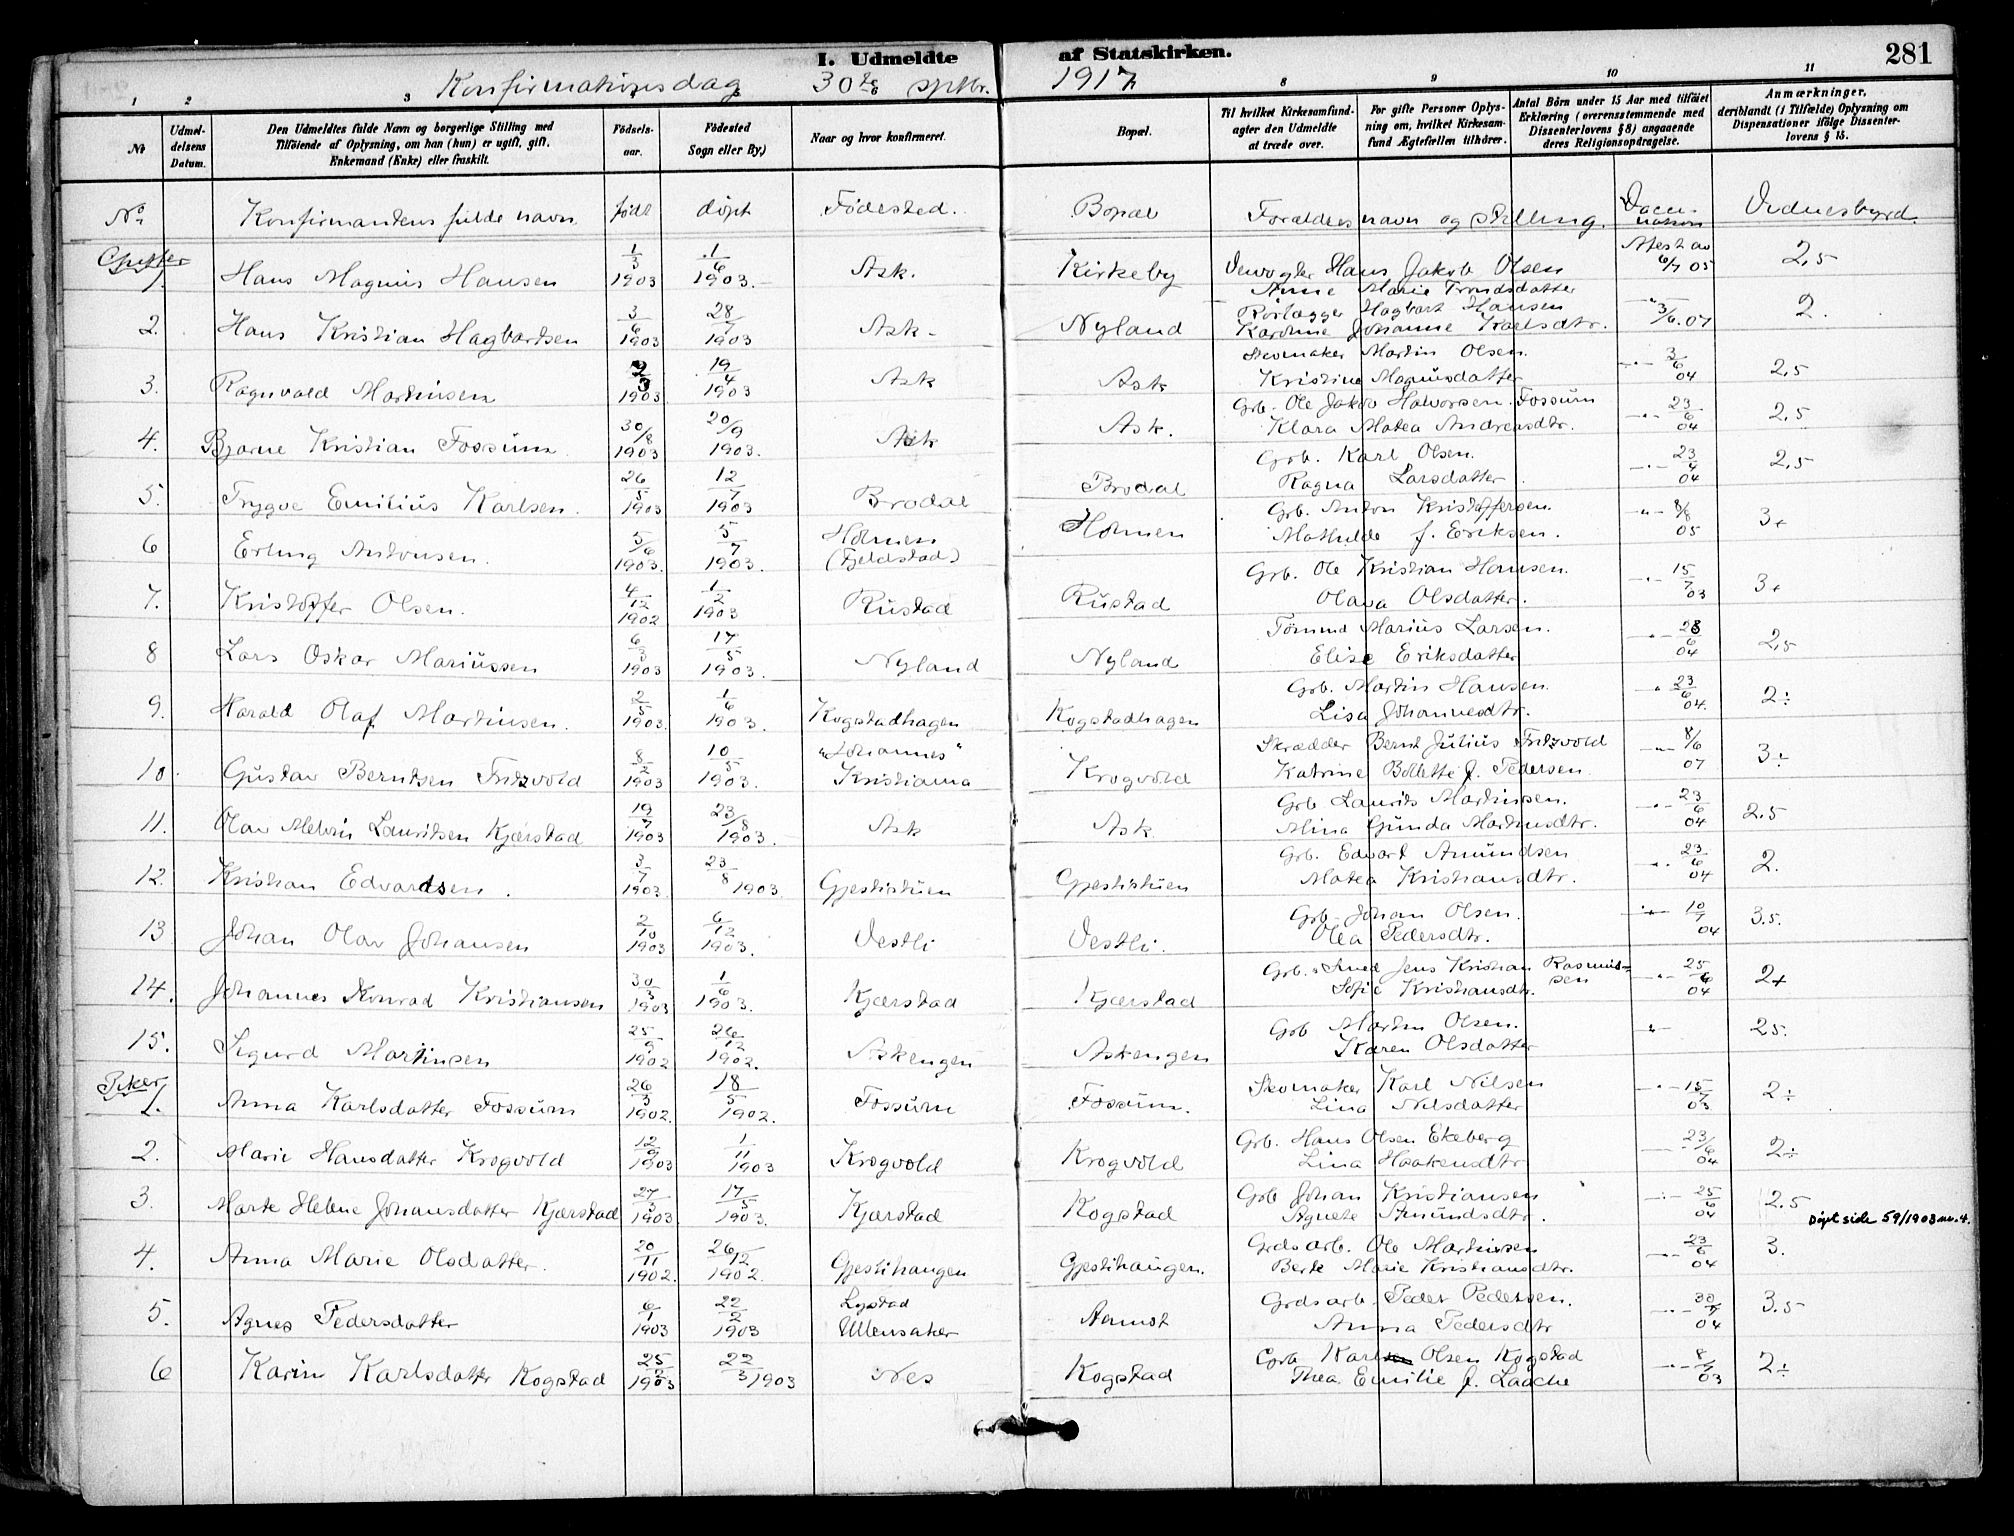 I. Udmeldte af Statskirken. 281
Konfirmationsdag 30te septbr. 1917
1 2 3 8 9 10 11
No Udmeldelsens Datum. Den Udmeldtes fulde Navn og borgerlige Stilling med Tilføiende af Oplysning, om han (hun) er ugift, gift, Enkemand (Enke) eller fraskilt. Fødselsaar. Fødested Sogn eller By.) Naar og hvor konfirmeret. Bopæl. Til hvilket Kirkesamfund agter den Udmeldte at træde over. For gifte Personer Oplysning om, hvilket Kirkesamfund Ægtefællen tilhører. Antal Børn under 15 Aar med tilføiet Erklæring (overensstemmende med Dissenterlovens § 8) angaaende deres Religionsopdragelse. Anmærkninger, deriblandt (i Tilfælde) Oplysning om Dispensationer ifølge Dissenterlovens § 15.
No. Konfirmantens fulde navn født døpt Fødested. Bopæl Forældres navn og stilling. Vaccination Vidnesbyrd.
Gutter
1. Hans Magnus Hansen 1/3 1903 1/6 1903. Ask. Kirkeby Hans Jakob Olsen Anne Marie Trondsdatter Attest av 6/7 05 2,5
2. Hans Kristian Hagbartsen 3/6 1903 28/7 1903 Ask. Nyland Rørlægger Hagbart Hansen Karoline Johanne Karlsdtr. 3/6. 07 2.
3. Ragnvald Martinsen 2/3 1903. 19/4 1903 Ask Ask Skomaker Martin Olsen. Kristine Magnusdatter 3/6 04 2,5
4. Bjarne Kristian Fossum 30/8 1903 20/9 1903. Ask Ask. Grb. Ole Jakob Halvorsen Fossum Klara Matea Andreasdtr. 23/6 04 2,5
5. Trygve Emilius Karlsen. 26/5 1903 12/7 1903 Brodal Brodal Grb. Karl Olsen. Ragna Larsdatter 23/9 04 2,5
6 Erling Antonsen. 5/6 1903. 5/7 1903. Holmen (Fjeldstad) Holmen Grb. Anton Kristoffersen. Mathilde f. Eriksen. 8/8 05 3+
7. Kristoffer Olsen. 4/12 1902 1/2 1903 Rustad Rustad Grb. Ole Kristian Hansen. Olava Olsdatter. 15/7 03 3+
8 Lars Oskar Mariussen 6/3 1903 17/5 1903. Nyland Nyland Tømmd Marius Larsen. Elise Eriksdatter 28/6 04 2,5
9. Harald Olaf Martinsen. 2/5 1903. 1/6 1903. Kogstadhagen Kogstadhagen Grb. Martin Hansen. Lisa Johannesdtr. 23/6 04. 2÷
10. Gustav Berntsen Fritzvold 8/2 1903 10/5 1903. "Johannes" Kristiania Krogvold Skrædder Bernt Julius Fritzvold Katrine Bollette f. Pedersen. 8/6 07 3÷
11. Olav Melvin Lauritsen Kjærstad 19/7 1903 23/8 1903. Ask Ask. Grb Laurits Martinsen. Alina Gunda Martinsdtr. 23/6 04 2.5
12. Kristian Edvardsen. 3/7 1903. 23/8 1903. Gjestistuen Gjestistuen Grb. Edvart Amundsen Matea Kristiansdtr. 23/6 04 2.
13 Johan Olav Johansen 2/10 1903 6/12 1903. Vestli Vestli. Grb. Johan Olsen. Olea Pedersdtr. 10/9 04 3.5.
14. Johannes Konrad Kristiansen 30/3 1903 1/6 1903. Kjærstad Kjærstad Grb. Smed Jens Kristian Rasmussen Sofie Kristiansdtr. 25/6 04 2+
15. Sigurd Martinsen 25/9 1902 26/12 1902. Askengen Askengen Grb Martin Olsen. Karen Olsdatter 25.
Piker
1. Anna Karlsdatter Fossum 26/3 1902. 18/5 1902. Fossum Fossum. Skomaker Karl Nilsen Lina Nilsdatter 15/7 03 2÷
2. Marie Hansdatter Krogvold 12/9 1903 1/11 1903 Krogvold Krogvold Grb. Hans Olsen Ekeberg Lina Haakensdtr 23/6 04 2÷
3. Marte Helene Johansdatter Kjærstad 27/3 1903. 17/5 1903. Kjærstad Kogstad Grb Johan Kristiansen Agnete Amundsdtr. 25/6 04 2.5
Døpt side 59/1903 nr. 4.
4. Anna Marie Olsdatter. 20/11 1902. 26/12 1902. Gjestihaugen Gjestihaugen. Grdsarb. Ole Martinsen Berte Marie Kristiansdtr. 23/6 04 3.
5. Agnes Pedersdatter 6/1 1903 22/2 1903 Lystad Ullensaker Aamot Grdsarb. Peder Pedersen. Anna Pedersdtr 30/7 04 3.5
6 Karin Karlsdatter Kogstad 25/2 1903 22/3 1903 Nes Kogstad Grb Karl Olsen Kogstad Thea Emilie f. Laache 8/7 03 2÷